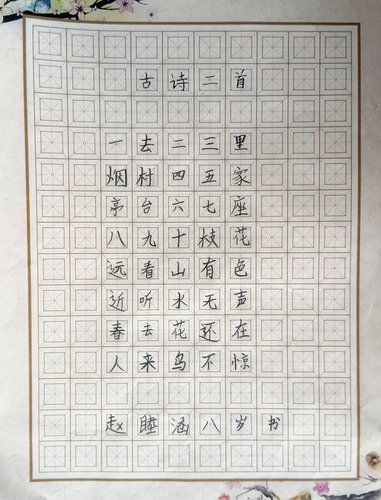 古诗二首
一去二三里
烟村四五家
亭台六七座
八九十枝花
远看山有色
近听水无声
春去花还在
人来鸟不惊
赵睦涵八岁书